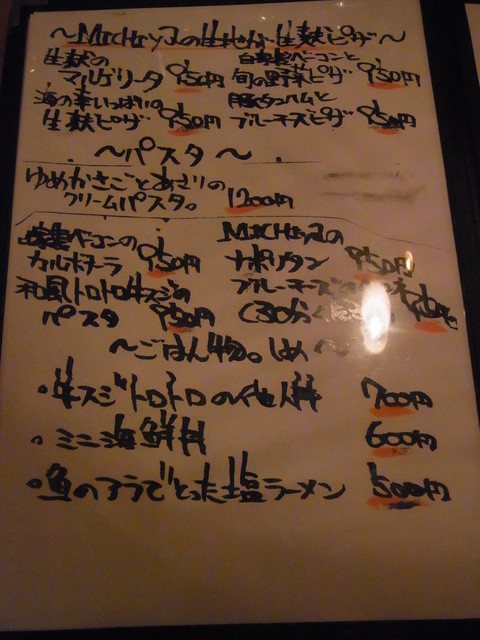 〜MICHIYAの生地が生麩ピザ〜
生麩の
マルゲリータ 950円
自家製ベーコンと
旬の野菜ピザ 950円
海の幸いっぱいの
生麩ピザ 950円
豚生ハムと
ブルーチーズピザ 950円
〜パスタ〜
ゆめかさごとあさりの
クリームパスタ。 1200円
自家製ベーコンの
カルボナーラ 950円
MICHIYAの
ナポリタン 950円
和風トロトロ牛スジの
パスタ 950円
ブルーチーズの
(30分
〜ごはん物。しめ〜
・牛スジトロトロの他人丼 700円
・ミニ海鮮丼 600円
・魚のアラでとった塩ラーメン 500円